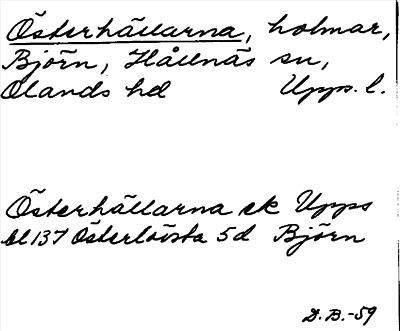 Österhällarna, holmar,
Björn, Hållnäs sn,
Olands hd Upps. l.
Österhällarna ek Upps
bl 137 Österlövsta 5d Björn
D. B. -59